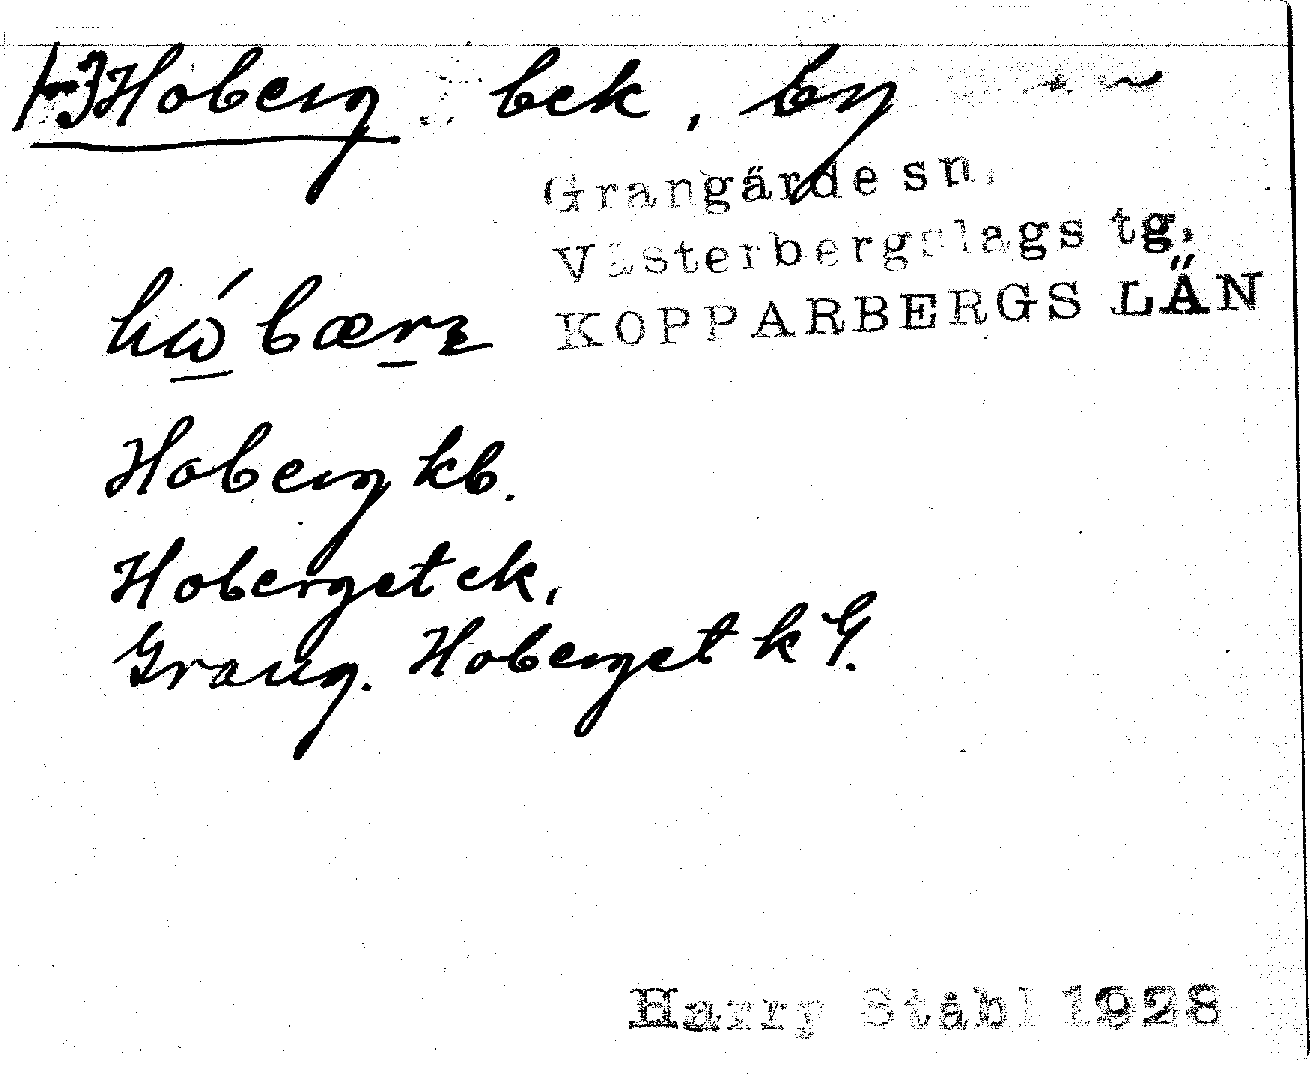 1-3 Hoberg bek, by
Grangärde sn.
Västerbergslags tg.
KOPPARBERGS LÄN
Hoberg kb.
Hoberget ek,
Grang. Hoberget k G.
Harry Ståhl 1928